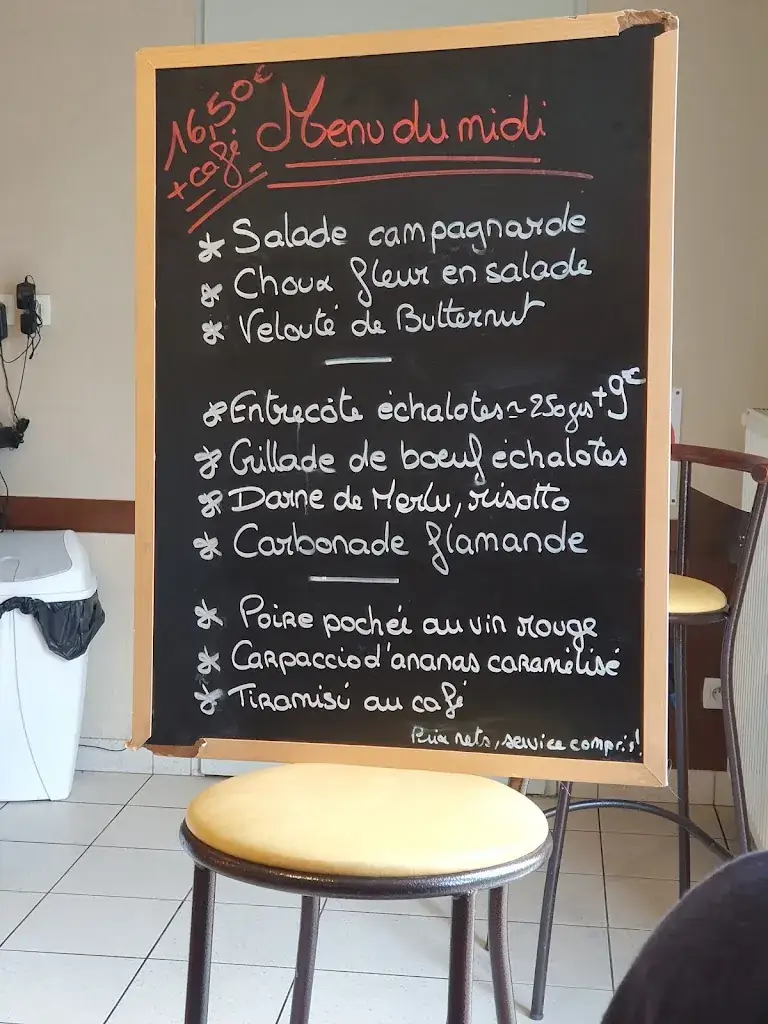 16,50€
+ café
Menu du midi
* Salade campagnarde
* Choux fleur en salade
* Velouté de Butternut
* Entrecôte échalotes ~ 250grs +9€
* Grillade de boeuf échalotes
* Darne de Merlu, risotto
* Carbonade flamande
* Poire pochée au vin rouge
* Carpaccio d'ananas caramélisé
* Tiramisi au café
Prix nets, service compris!